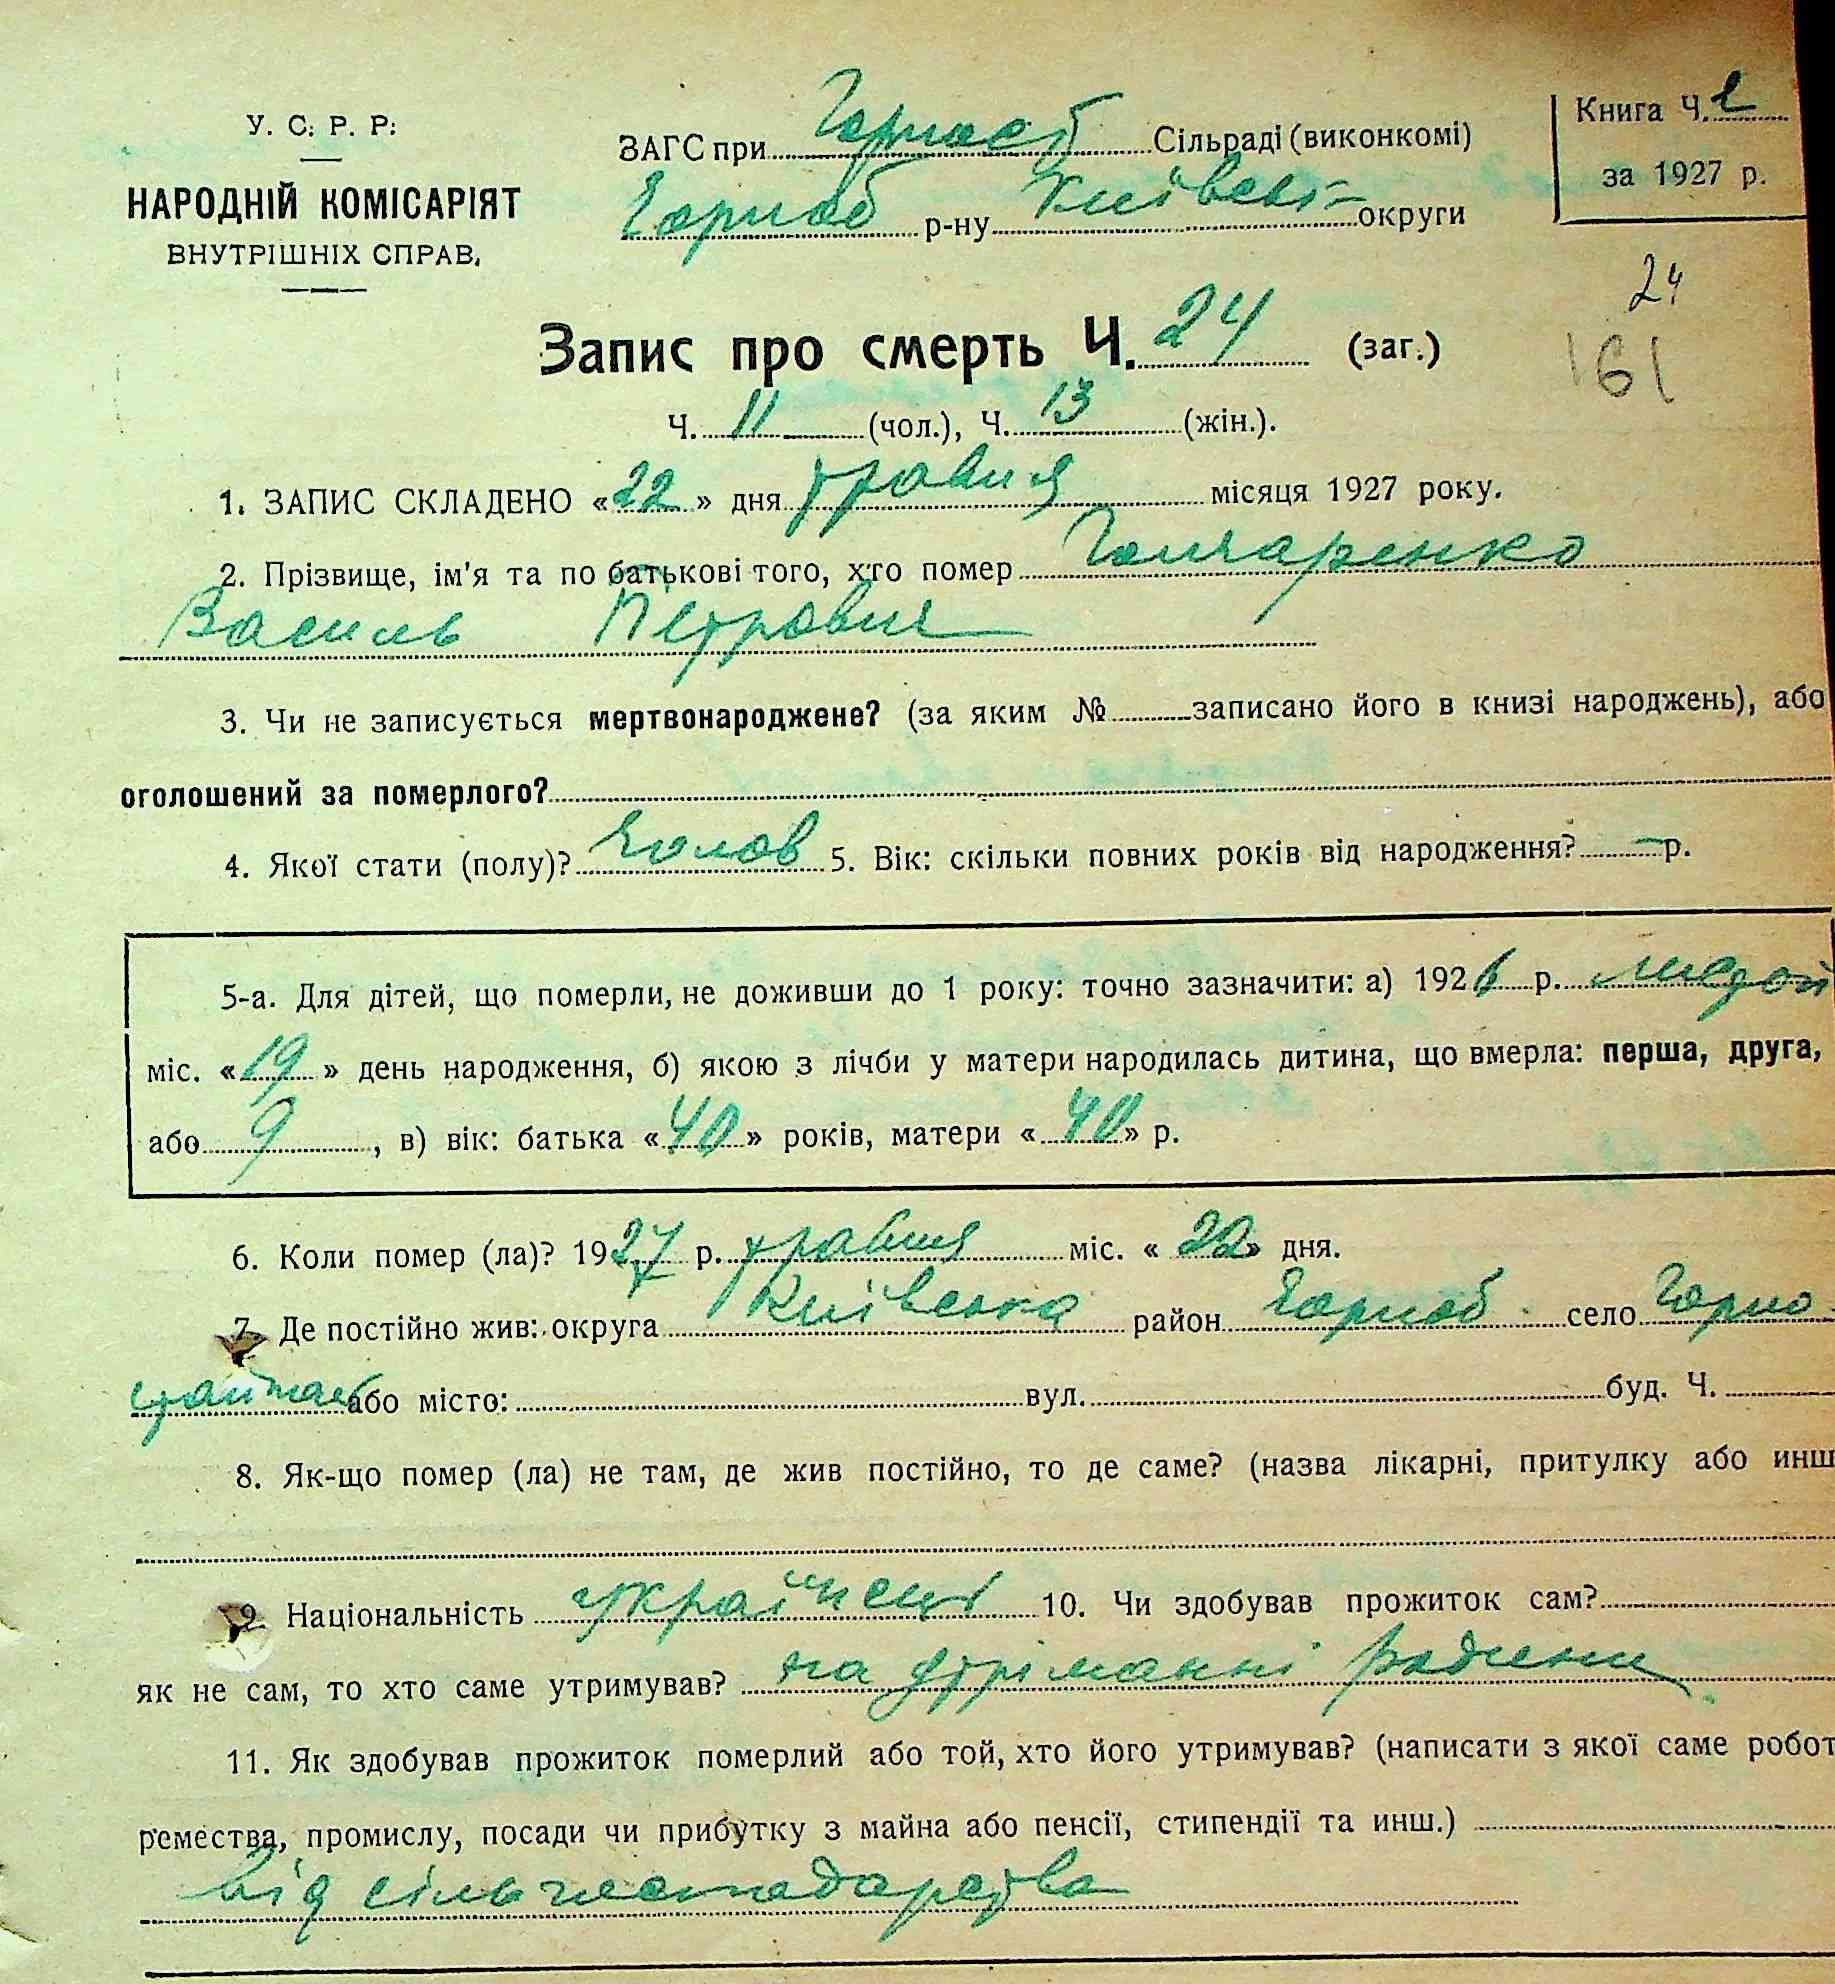 У. С. Р. Р.
НАРОДНІЙ КОМІСАРІЯТ
ВНУТРІШНІХ СПРАВ.
ЗАГС при Горност Сільраді (виконкомі)
р-ну Київськ округи
Книга Ч. 2
за 1927 р.
24
161
Запис про смерть Ч. 24 (заг.)
Ч. 11 (чол.), Ч. 13 (жін.).
1. ЗАПИС СКЛАДЕНО «22» дня травня місяця 1927 року.
2. Прізвище, ім'я та по батькові того, хто помер Гончаренко
Василь Петрович
3. Чи не записується мертвонароджене? (за яким № записано його в книзі народжень), або
оголошений за померлого?
4. Якої стати (полу)? Чолов 5. Вік: скільки повних років від народження? — р.
5-а. Для дітей, що померли, не доживши до 1 року: точно зазначити: а) 1926 р.
міс. «19» день народження, б) якою з лічби у матери народилась дитина, що вмерла: перша, друга,
або 9, в) вік: батька «40» років, матери «40» р.
6. Коли помер (ла)? 1927 р. травня міс. «22» дня.
7. Де постійно жив: округа Київська район село
або місто: вул. буд. Ч.
8. Як-що помер (ла) не там, де жив постійно, то де саме? (назва лікарні, притулку або инш
9. Національність українец 10. Чи здобував прожиток сам?
як не сам, то хто саме утримував? на утріманні родини
11. Як здобував прожиток померлий або той, хто його утримував? (написати з якої саме робот
ремества, промислу, посади чи прибутку з майна або пенсії, стипендії та инш.)
від сільгосподарства